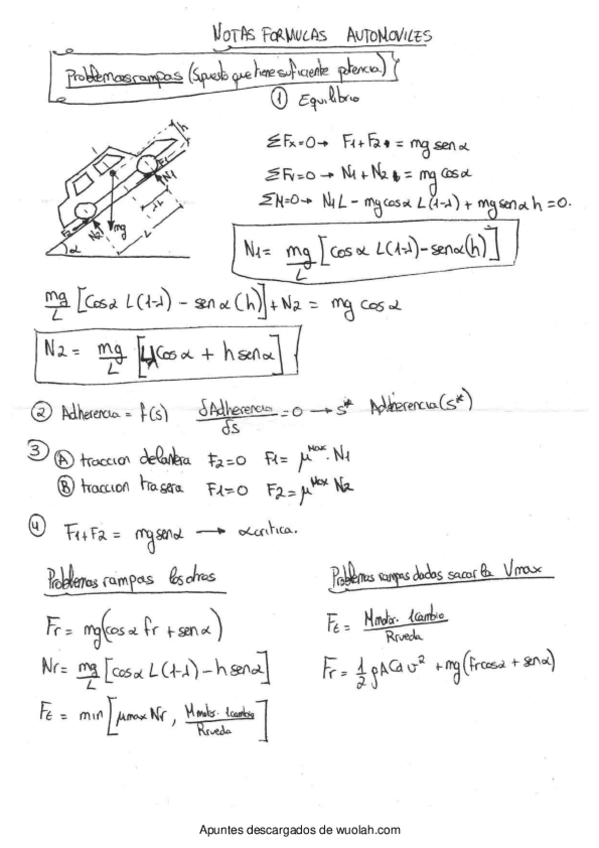 NOTAS FORMULAS AUTOMOVILES
Problemas rampas (Supuesto que tiene suficiente potencia)
① Equilibrio
ΣFx=0→ F1+F2 = mg sen α
ΣFv=0→ N1+N2 = mg cos α
ΣM=0→ N1L - mg cos α L(1-λ) + mg sen α h = 0.
h
F1
N1
λL
L
mg
N2
F2
α
N1 = mg/L [cos α L(1-λ) - sen α(h)]
mg/L [Cos α L(1-λ) - sen α(h)] + N2 = mg cos α
N2 = mg/L [Lλ Cos α + h sen α]
② Adherencia = f(s) δAdherencia/δs = 0 → s* Adherencia(s*)
③ Ⓐ traccion delantera F2=0 F1= μ^Max · N1
Ⓑ traccion trasera F1=0 F2= μ^Max N2
④ F1+F2 = mg sen α → α critica.
Problemas rampas los otros
Fr = mg(cos α fr + sen α)
Nr = mg/L [cos α L(1-λ) - h sen α]
Ft = min [μmax Nr, Mmotor. icambio/Rrueda]
Problemas rampas dados sacar la Vmax
Ft = Mmotor. icambio/Rrueda
Fr = 1/2 ρACd v² + mg(fr cos α + sen α)
Apuntes descargados de wuolah.com